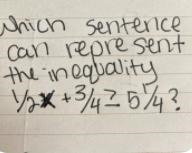 Which sentence
can represent
the inequality
1/2x + 3/4 ≥ 5 1/4?